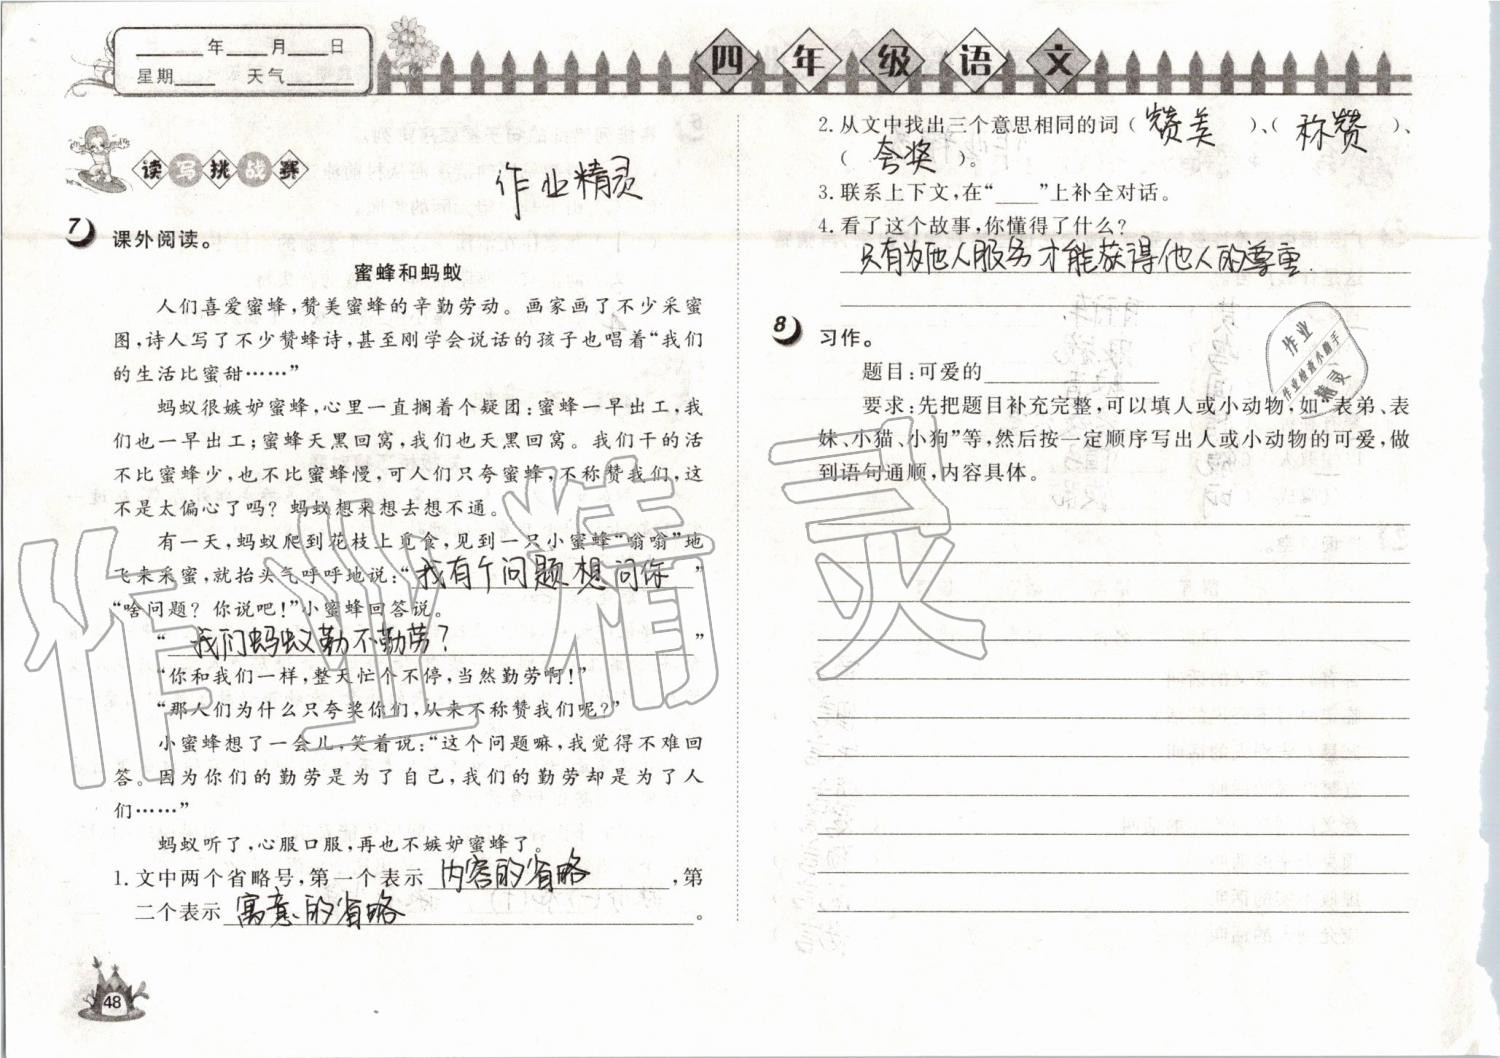 ____年____月____日
星期____ 天气____
四年级语文
读写挑战赛
作业精灵
7 课外阅读。
蜜蜂和蚂蚁
人们喜爱蜜蜂，赞美蜜蜂的辛勤劳动。画家画了不少采蜜
图，诗人写了不少赞蜂诗，甚至刚学会说话的孩子也唱着“我们
的生活比蜜甜……”
蚂蚁很嫉妒蜜蜂，心里一直搁着个疑团：蜜蜂一早出工，我
们也一早出工；蜜蜂天黑回窝，我们也天黑回窝。我们干的活
不比蜜蜂少，也不比蜜蜂慢，可人们只夸蜜蜂，不称赞我们，这
不是太偏心了吗？蚂蚁想来想去想不通。
有一天，蚂蚁爬到花枝上觅食，见到一只小蜜蜂“嗡嗡”地
飞来采蜜，就抬头气呼呼地说：“我有个问题想问你”
“啥问题？你说吧！”小蜜蜂回答说。
“我们蚂蚁勤不勤劳？”
“你和我们一样，整天忙个不停，当然勤劳啊！”
“那人们为什么只夸奖你们，从来不称赞我们呢？”
小蜜蜂想了一会儿，笑着说：“这个问题嘛，我觉得不难回
答。因为你们的勤劳是为了自己，我们的勤劳却是为了人
们……”
蚂蚁听了，心服口服，再也不嫉妒蜜蜂了。
1. 文中两个省略号，第一个表示 内容的省略，第
二个表示 寓意的省略。
48
2. 从文中找出三个意思相同的词（赞美）、（称赞）、
（夸奖）。
3. 联系上下文，在“____”上补全对话。
4. 看了这个故事，你懂得了什么？
只有为他人服务才能获得他人的尊重.
8 习作。
题目：可爱的____________
要求：先把题目补充完整，可以填人或小动物，如“表弟、表
妹、小猫、小狗”等，然后按一定顺序写出人或小动物的可爱，做
到语句通顺，内容具体。
作业
作业检查小助手
精灵
作业精灵